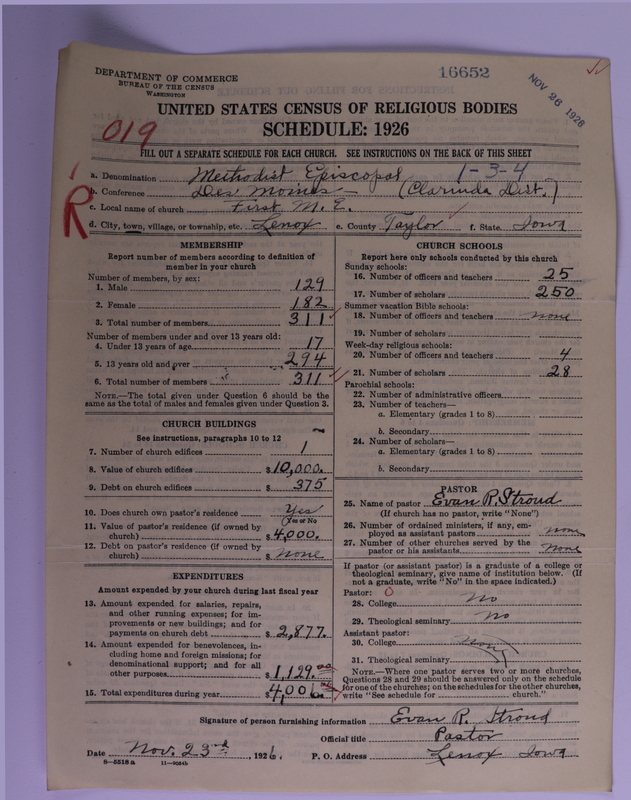 DEPARTMENT OF COMMERCE
BUREAU OF THE CENSUS
WASHINGTON
16652
NOV 26 1926
UNITED STATES CENSUS OF RELIGIOUS BODIES
SCHEDULE: 1926
019
FILL OUT A SEPARATE SCHEDULE FOR EACH CHURCH. SEE INSTRUCTIONS ON THE BACK OF THIS SHEET
R
a. Denomination Methodist Episcopal 1-3-4
b. Conference Des Moines — (Clarinda Dist.)
c. Local name of church First M. E.
d. City, town, village, or township, etc. Lenox e. County Taylor f. State Iowa
MEMBERSHIP
Report number of members according to definition of
member in your church
Number of members, by sex:
1. Male 129
2. Female 182
3. Total number of members 311
Number of members under and over 13 years old:
4. Under 13 years of age 17
5. 13 years old and over 294
6. Total number of members 311
NOTE.—The total given under Question 6 should be
same as the total of males and females given under Question 3.
CHURCH BUILDINGS
See instructions, paragraphs 10 to 12
7. Number of church edifices 1
8. Value of church edifices $10,000.
9. Debt on church edifices $ 375
10. Does church own pastor's residence Yes
(Yes or No)
11. Value of pastor's residence (if owned by
church) $4,000.
12. Debt on pastor's residence (if owned by
church) $ none
EXPENDITURES
Amount expended by your church during last fiscal year
13. Amount expended for salaries, repairs,
and other running expenses; for im-
provements or new buildings; and for
payments on church debt $2,877.
14. Amount expended for benevolences, in-
cluding home and foreign missions; for
denominational support; and for all
other purposes $1,129.00
15. Total expenditures during year $4,006.
CHURCH SCHOOLS
Report here only schools conducted by this church
Sunday schools:
16. Number of officers and teachers 25
17. Number of scholars 250
Summer vacation Bible schools:
18. Number of officers and teachers none
19. Number of scholars
Week-day religious schools:
20. Number of officers and teachers 4
21. Number of scholars 28
Parochial schools:
22. Number of administrative officers
23. Number of teachers—
a. Elementary (grades 1 to 8)
b. Secondary
24. Number of scholars—
a. Elementary (grades 1 to 8)
b. Secondary
PASTOR
25. Name of pastor Evan R. Stroud
(If church has no pastor, write "None")
26. Number of ordained ministers, if any, em-
ployed as assistant pastors none
27. Number of other churches served by the
pastor or his assistants none
If pastor (or assistant pastor) is a graduate of a college or
theological seminary, give name of institution below. (If
not a graduate, write "No" in the space indicated.)
Pastor: 0
28. College No
29. Theological seminary No
Assistant pastor:
30. College none
31. Theological seminary
NOTE.—Where one pastor serves two or more churches,
Questions 28 and 29 should be answered only on the schedule
for one of the churches; on the schedules for the other churches,
write "See schedule for church."
Signature of person furnishing information Evan R. Stroud
Official title Pastor
Date Nov. 23rd, 1926. P. O. Address Lenox Iowa
8—5518 a